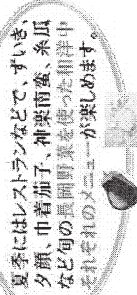 夏季にはレストランなどで、ずいき、
夕顔、巾着茄子、神楽南蛮、糸瓜
など旬の長岡野菜を使った和洋中
それぞれのメニューが楽しめます。